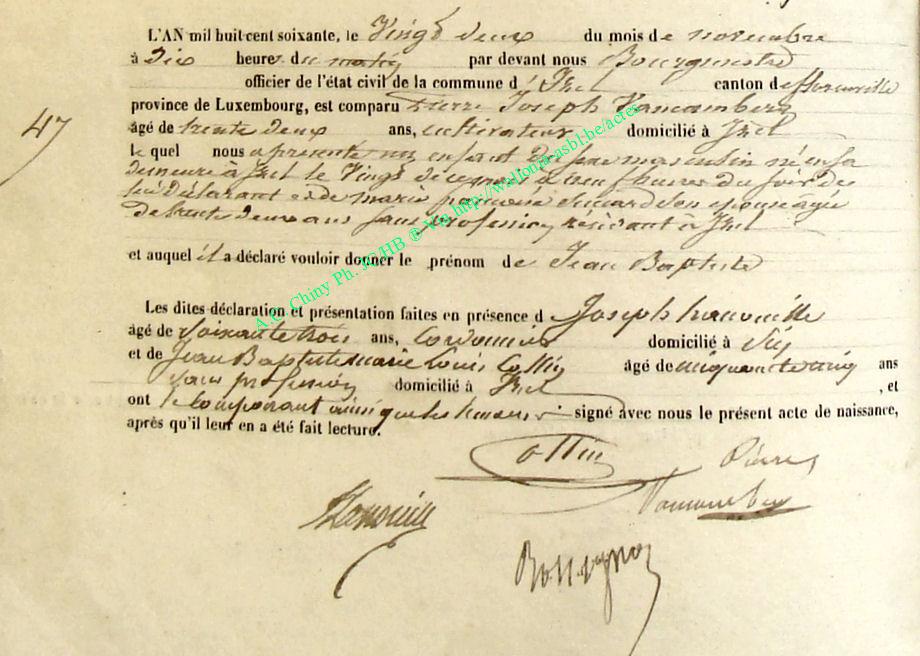 L'AN mil huit cent soixante, le Vingt deux du mois de novembre
à dix heures du matin par devant nous Bourgmestre
officier de l'état civil de la commune d'Izel canton de florenville
province de Luxembourg, est comparu Pierre Joseph Vanamberg
47
âgé de trente deux ans, cultivateur domicilié à Izel
le quel nous a présenté un enfant de sexe masculin né en sa
demeure à Izel le Vingt de ce mois à neuf heures du soir de
lui déclarant et de marie son épouse âgée
de trente deux ans sans profession résidant à Izel
et auquel il a déclaré vouloir donner le prénom de Jean Baptiste
A.C. Chiny Ph. JC/HB ® Via http://wallonia-asbl.be/actes
Les dites déclaration et présentation faites en présence de Joseph
âgé de Soixante trois ans, Cordonnier domicilié à
et de Jean Baptiste marie Louis Collin âgé de cinquante cinq ans
sans profession domicilié à Izel , et
ont le comparant ainsi que les témoins signé avec nous le présent acte de naissance,
après qu'il leur en a été fait lecture.
Collin Pierre
Rossignon